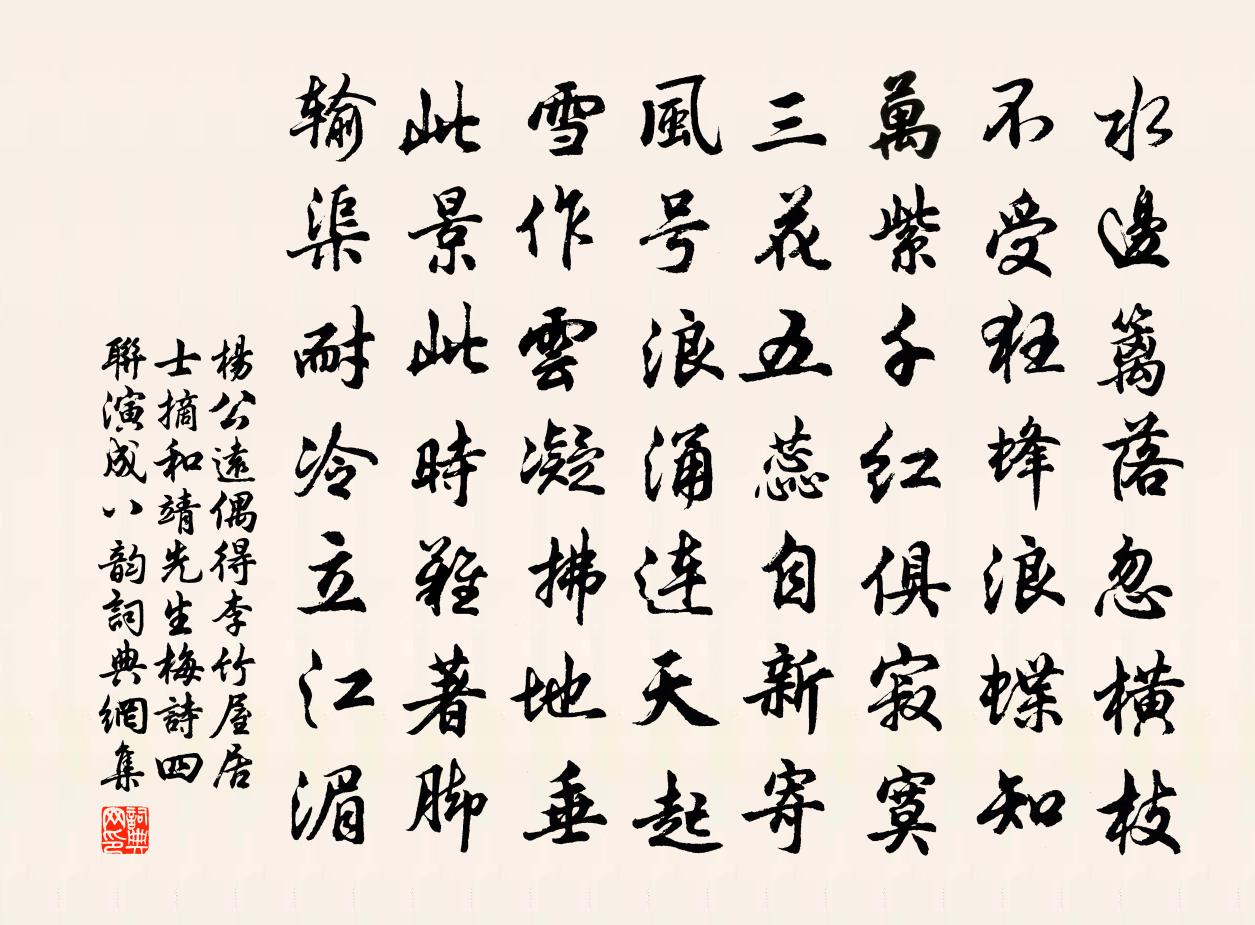 水邊籬落忽橫枝
不受狂蜂浪蝶知
萬紫千红俱寂寞
三花五蕊自新寄
風号浪涌连天起
雪作雲凝拂地垂
此景此時難著脚
输渠耐冷立江湄
楊公遠偶得李竹屋居
士摘和靖先生梅詩四
聯演成八韵詞典網集
詞典
网印